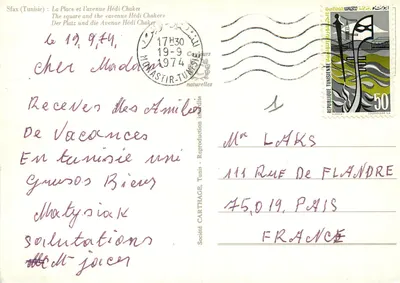 Sfax (Tunisie) : La Place et l'avenue Hédi Chaker
The square and the avenue Hédi Chaker
Der Platz und die Avenue Hédi Chaker
le 19.9.74,
Cher Madam
Receves des Amities
De Vacances
En tunisie uni
Grusos Bieus
Matysiak
salutations
Mr jacer
17H30
19-9
1974
MONASTIR-TUNISIE
naturelles
Société CARTHAGE, Tunis - Reproduction
REPUBLIQUE TUNISIENNE
50
1
Mr LAKS
111 RUE DE FLANDRE
75,019. PAIS
FRANCE